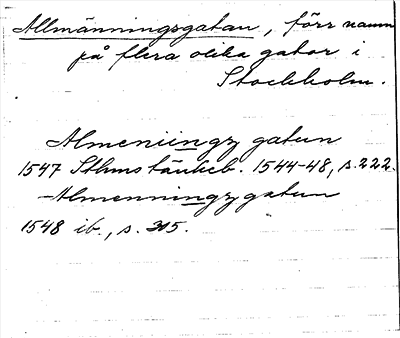 Allmänningsgatan, förr namn
på flera olika gator i
Stockholm.
Almeniingz gatun
1547 Sthms tänkeb. 1544-48, s. 222.
Almenningzgatun
1548 ib., s. 315.